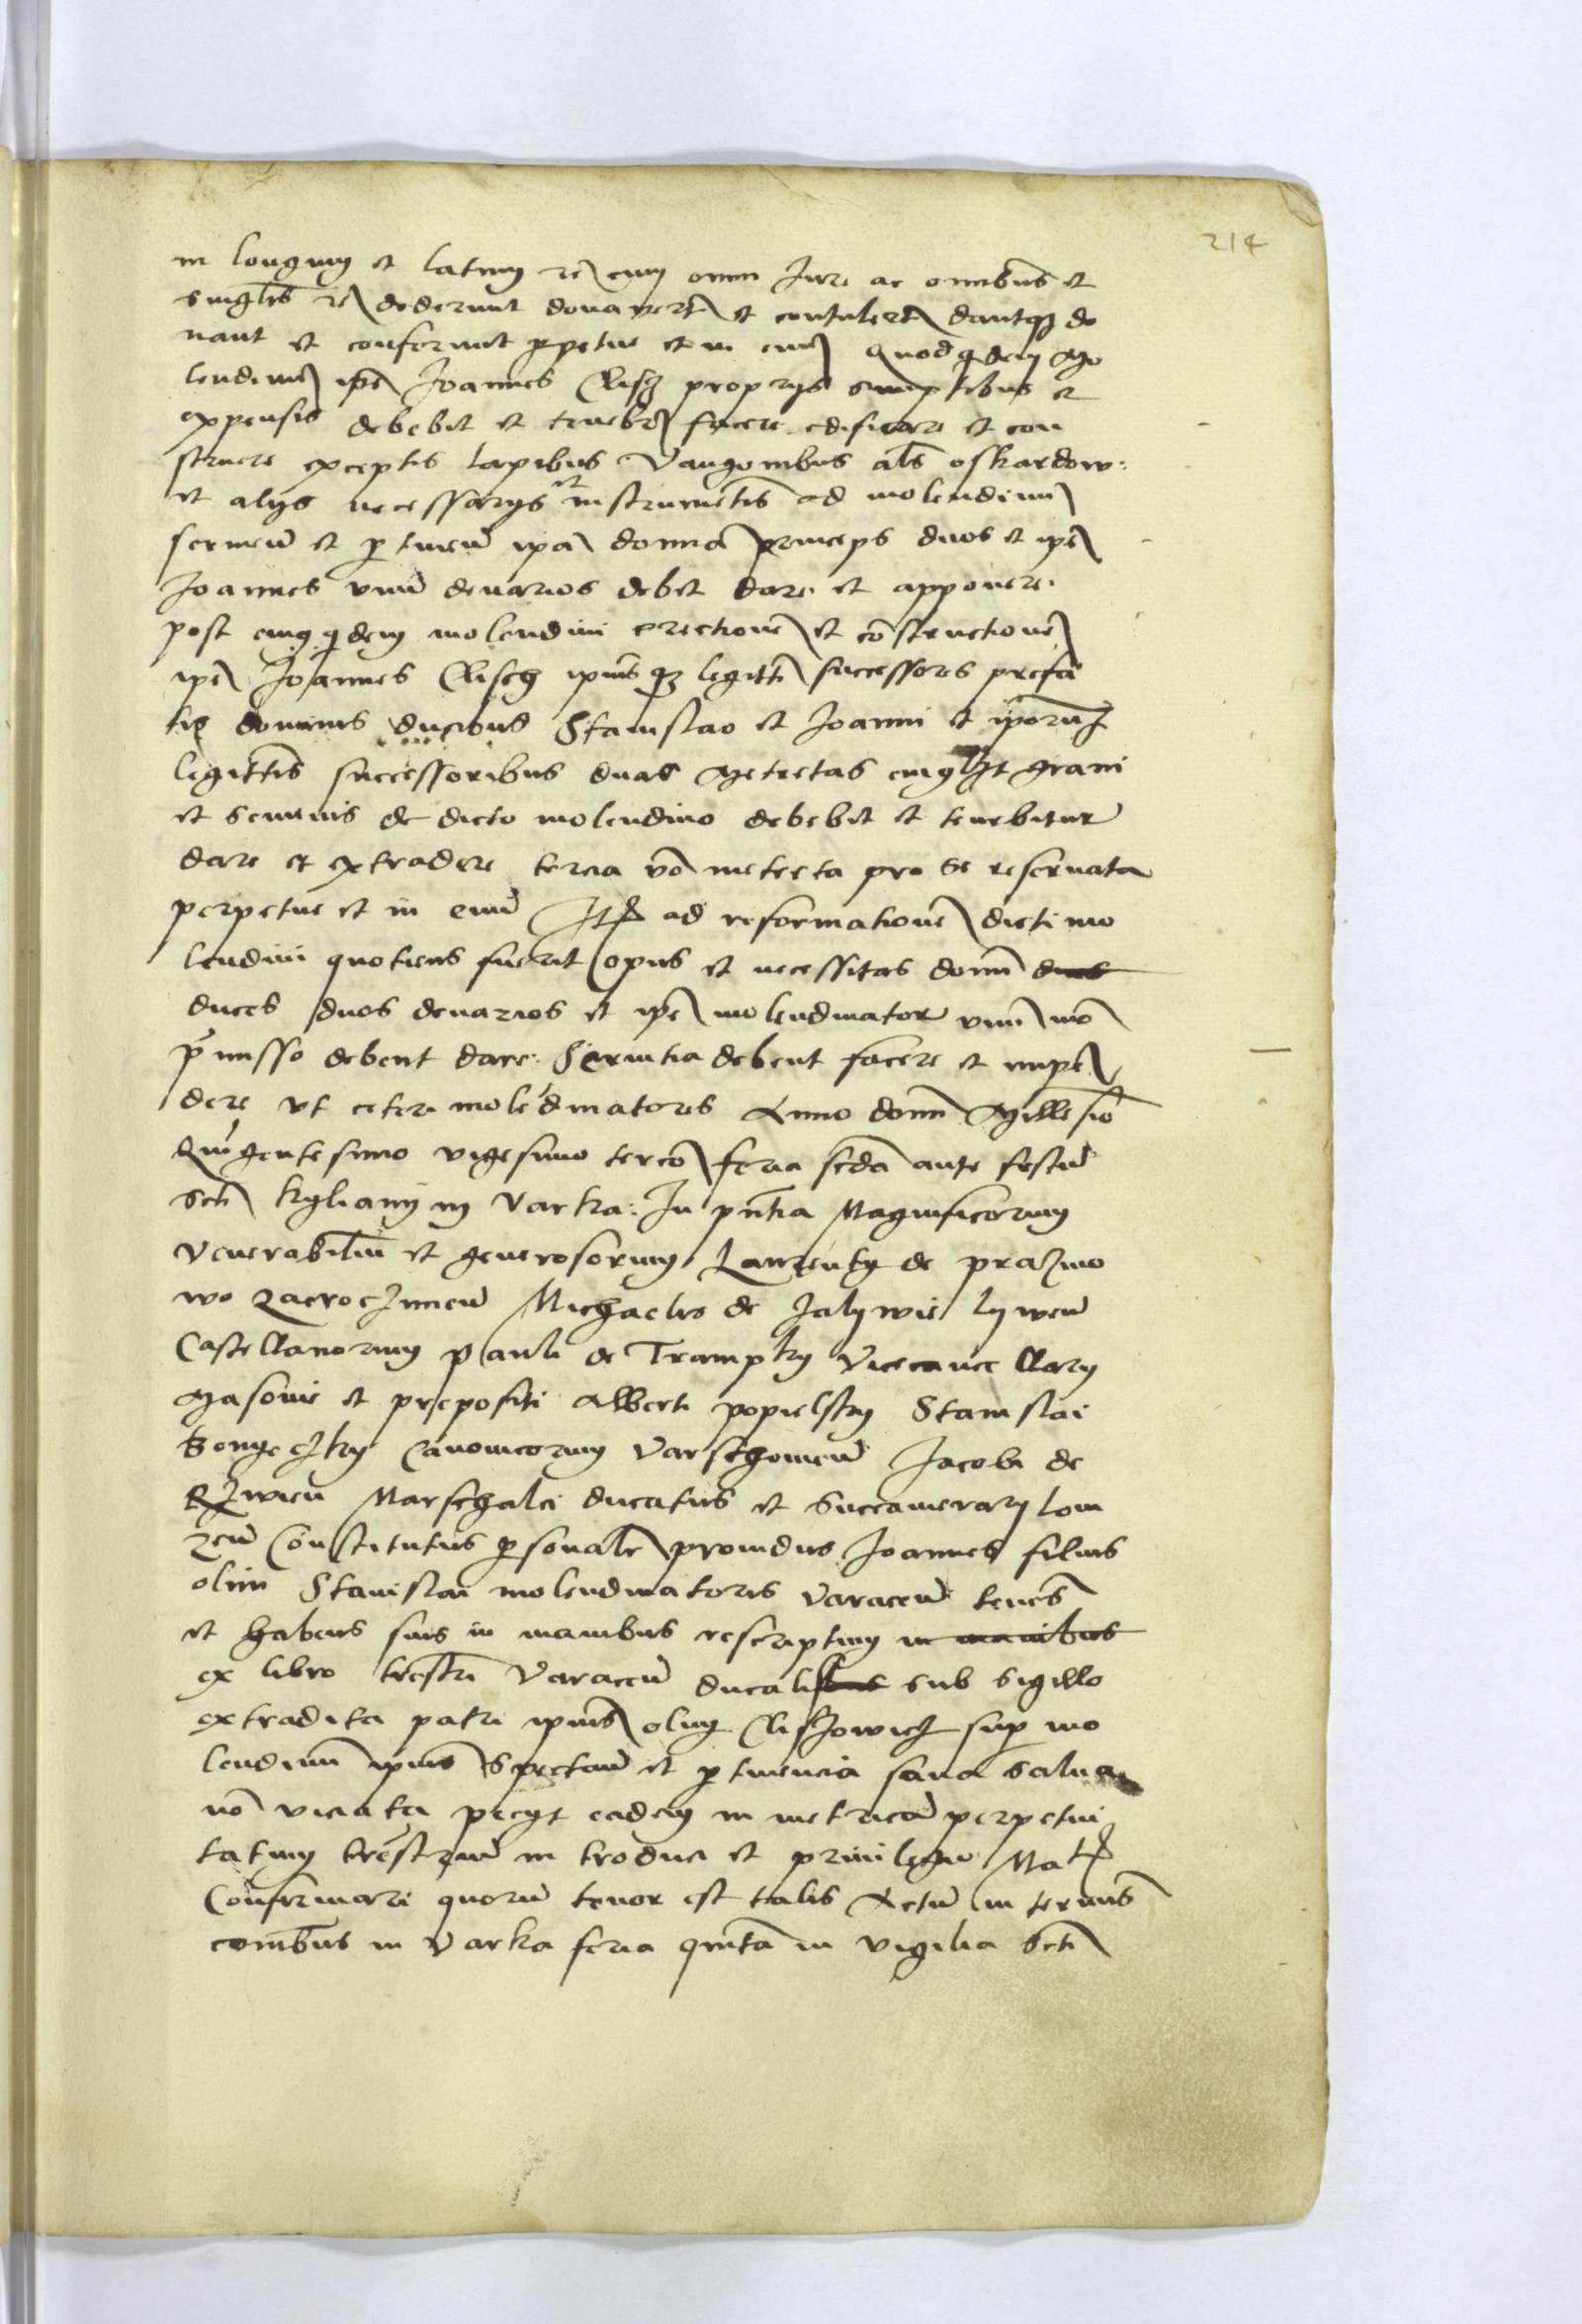 214
in longum et latum re cum omni Jure ac omnibus et
singlis re dederunt donavert et contulert dantqz do
nant et conferunt ppetue et in evu Quod qdem Mo
lendinu ipe Joannes Clisz proprys sumptibus et
expensis debebit et tenebr facere edificare et con
struere exceptis lapibus Vangonibus als oskardow:
et alys necessarys et instrumetis ad molendinu
serneu et ptineu ipa domina princeps duos et ipe
Joannes vnu denarios debet dare et apponere.
post cuiqdem molendini erectione et constructione
ipe Joannes Clisch ipiusqz legitti successores prefa
tis dominis ducibus Stanislao et Joanni et iporum
legittis successoribus duas Metretas cuiuslzt grani
et seminis de dicto molendino debebit et tenebitur
dare et extradere tercia vo metreta pro se reseruata
perpetue et in evu Ite ad reformatione dicti mo
lendini quotiens fuerit opus et necessitas domi duos
duces duos denarios et ipe molendinator vnu mo
pmisso debent dare. Seruitia debent facere et impe
dere vt ceteri moledinatores Anno domi Millesio
Quigentesimo vigesimo tercio feria scda ante festu
Scti kyliani in Varka: In pntia Magnificorum
Venerabiliu et generosorum Laurenty de prazmo
wo Zacroczimeu Michaelis de Zalywie lyweu
Castellanorum pauli de Trampky Vicecancellary
Masouie et prepositi Alberti popielsky Stanislai
Bongeczky Canonicorum Varschouieu Jacobi de
Rzwien Marschalci ducatus et Succamerarij lom
zeu Constitutus psonale prouidus Joannes filius
olim Stanislai molendinatoris Varaceu tenes
et habens suis in manibus rescriptum in manibus
ex libro trestri Varaceu ducali sub sigillo
extradita patri ipius olim Cliszowicz sup mo
lendinu ipius Spectau et ptinencia sana salua
no viciata pecyt eadem in metrica perpetui
tatum trestrium introduci et priuilegio Mate
Confirmari quoru tenor est talis Actu in terminis
comibus in Varka feria quita in vigilia Scti